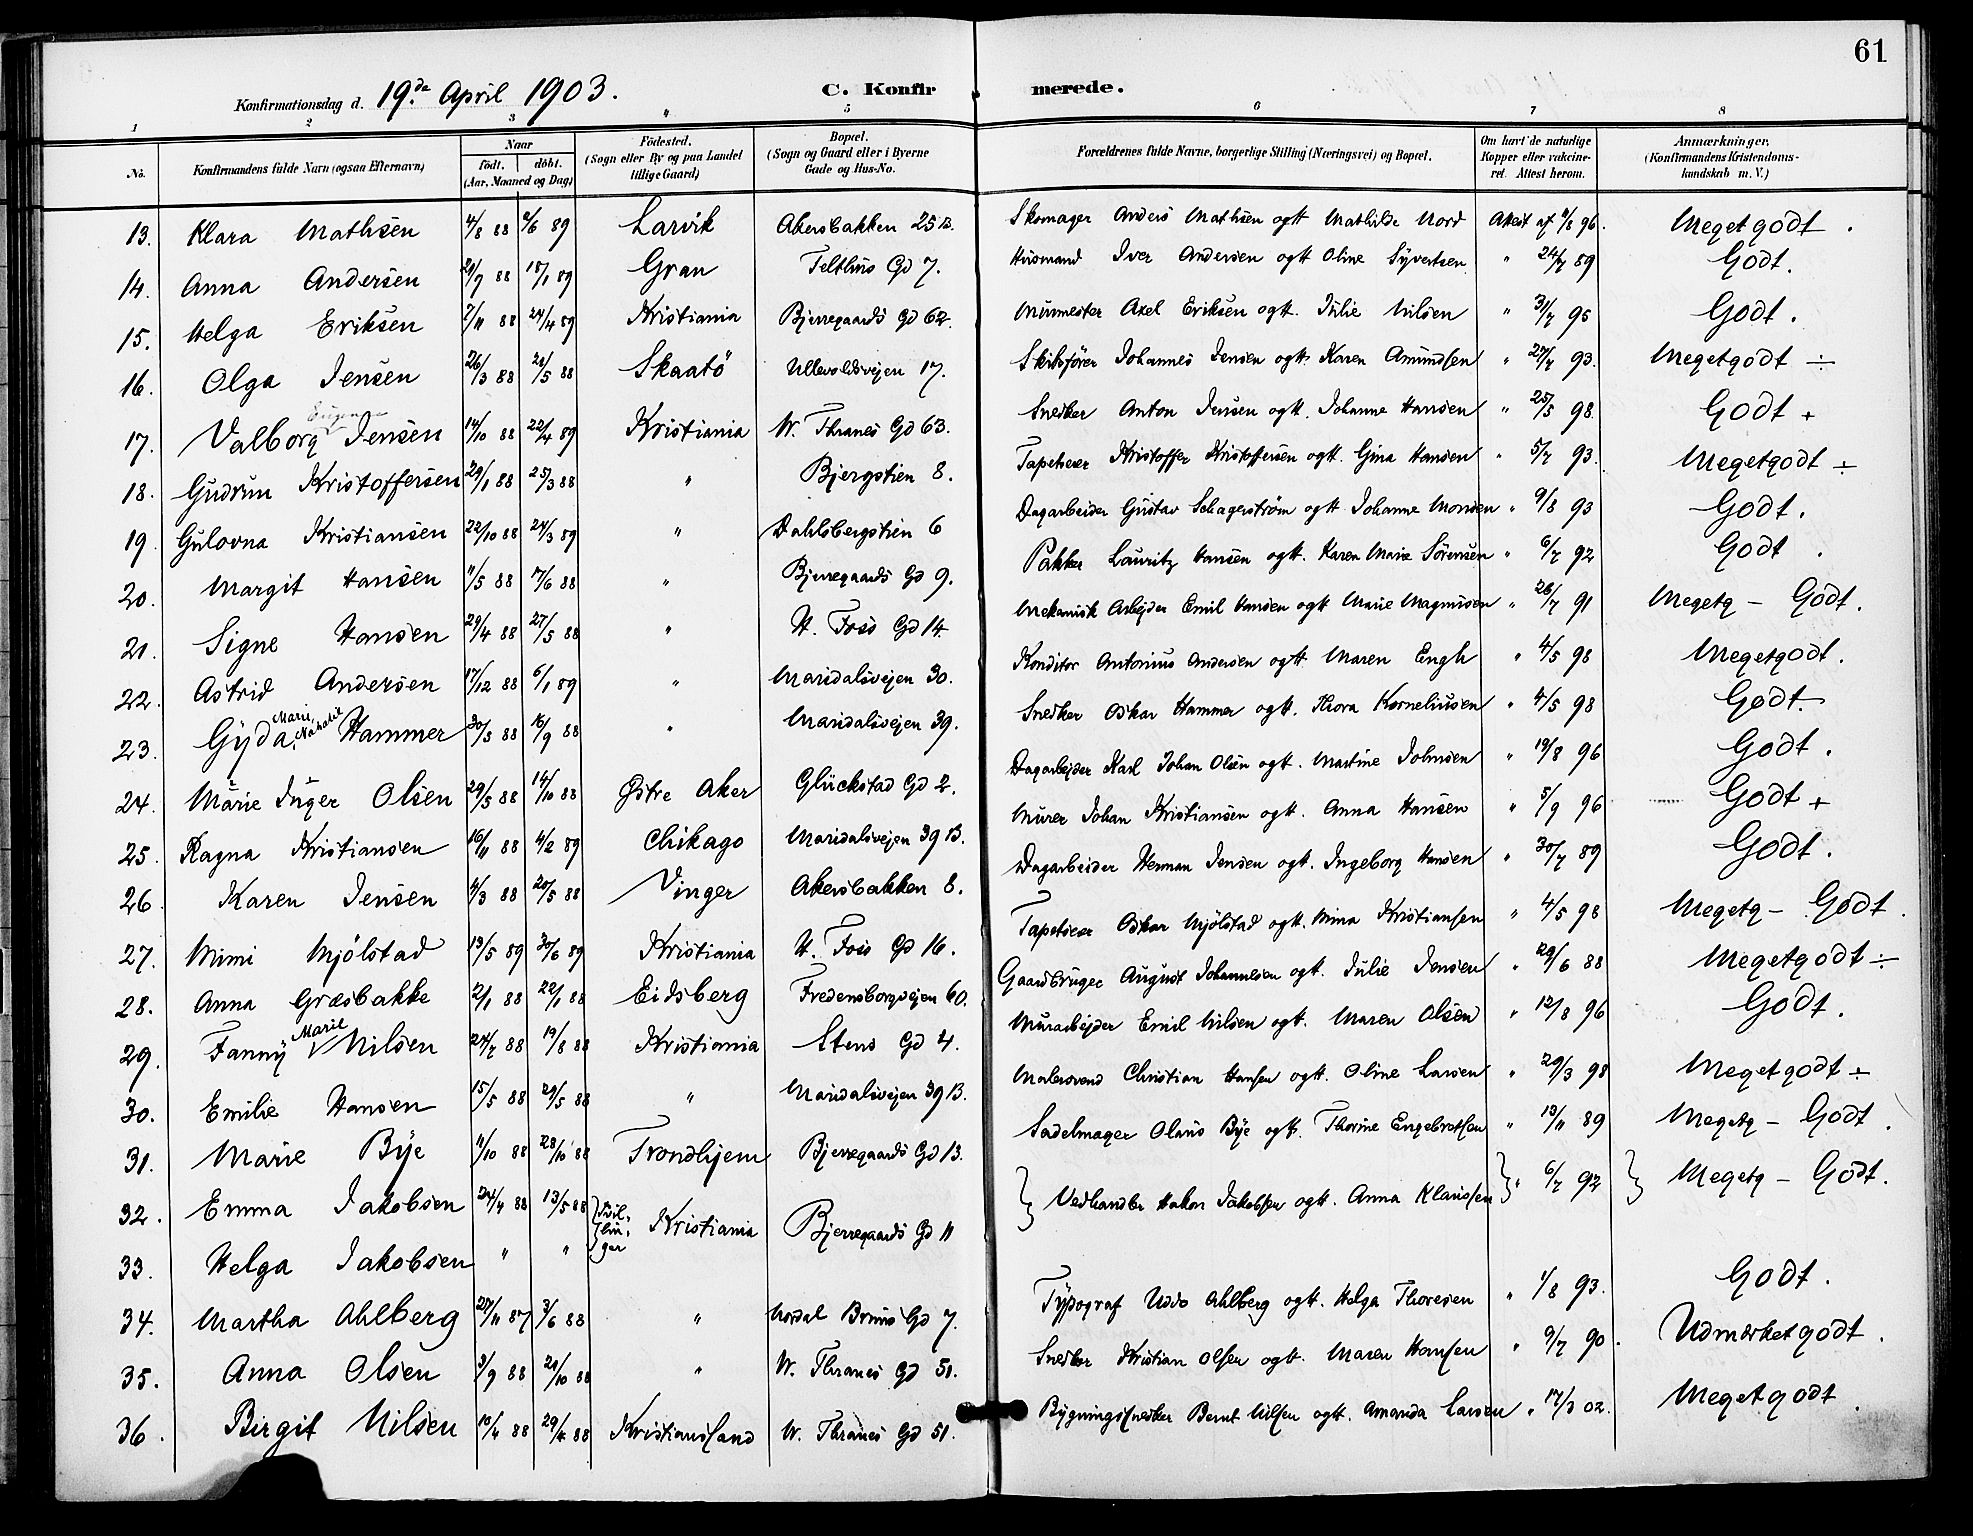 61
Konfirmationsdag d. 19.de April 1903.
C. Konfirmerede.
1 2 3 4 5 6 7 8
No. | Konfirmandens fulde Navn (ogsaa Efternavn) | Naar født. døbt. (Aar, Maaned og Dag) | Fødested. (Sogn eller By og paa Landet tillige Gaard) | Bopæl. (Sogn og Gaard eller i Byerne Gade og Hus-No. | Forældrenes fulde Navne, borgerlige Stilling (Næringsvei) og Bopæl. | Om havt de naturlige Kopper eller vakcineret. Attest herom. | Anmærkninger. (Konfirmandens Kristendomskundskab m. V.)
13. Klara Mathsen 4/8 88 2/6 89 Larvik Akersbakken 25 B. Skomager Anders Mathsen ogtt Mathilde Nord Attest af 11/8 96. Meget godt.
14. Anna Andersen 21/7 88 18/1 89 Gran Telthus Gd 7. Husmand Iver Andersen ogtt Oline Syvertsen " 24/7 89 Godt.
15. Helga Eriksen 7/11 88 24/4 89 Kristiania Bjerregaards Gd 62. Murmester Axel Eriksen ogtt. Julie Nilsen " 31/7 95 Godt.
16. Olga Jensen 26/3 88 21/5 88 Skaatö Ullevoldsvejen 17. Skibsfører Johannes Jensen ogtt. Karen Amundsen " 27/7 93. Megetgodt ÷
17. Valborg Jensen 14/10 88 22/4 89 Kristiania W. Thranes Gd 63. Snedker Anton Jensen ogtt. Johanne Hansen " 25/5 98. Godt +
18. Gudrun Kristoffersen 29/1 88 25/3 88 " Bjergstien 8. Tapetserer Kristoffer Kristoffersen ogtt. Gina Hansen " 5/7 93. Megetgodt ÷
19. Gulovna Kristiansen 22/10 88 24/3 89 " Dahlsbergstien 6 Dagarbeider Gustav Schagerström ogtt Johanne Monsen " 9/8 93 Godt.
20. Margit Hansen 11/5 88 17/6 88 " Bjerregaards Gd 9. Pakker Lauritz Hansen ogtt. Karen Marie Sörensen " 6/7 92 Godt.
21. Signe Hansen 29/4 88 27/5 88 " N. Foss Gd 14. Mekanisk Arbejder Emil Hansen ogtt Marie Magnusen " 26/7 91 Megetg - Godt.
22. Astrid Andersen 17/12 88 6/1 89 " Maridalsvejen 30. Konditor Antonius Andersen ogtt Maren Engh " 4/5 98 Megetgodt.
23. Gyda Marie, Nathalie Hammer 30/5 88 16/9 88 " Maridalsvejen 39. Snedker Oskar Hammer ogtt. Thora Korneliusen " 4/5 98 Godt.-
24. Marie Inger Olsen 29/5 88 14/10 88 Østre Aker Glückstad Gd 2. Dagarbejder Karl Johan Olsen ogtt. Martine Johnsen " 19/8 96 Godt.
25. Ragna Kristiansen 16/11 88 4/2 89 Chikago Maridalsvejen 39 B. Murer Johan Kristiansen ogtt. Anna Hansen " 5/9 96 Godt +
26. Karen Jensen 4/3 88 20/5 88 Vinger Akersbakken 8. Dagarbeider Herman Jensen ogtt. Ingeborg Hansen " 30/7 89 Godt.
27. Mimi Mjölstad 13/5 89 30/6 89 Kristiania N. Foss Gd 16. Tapetserer Oskar Mjölstad ogtt. Mina Kristiansen " 4/5 98 Megetg - Godt.
28. Anna Græsbakke 2/1 88 22/1 88 Eidsberg Fredensborgvejen 60. Gaardbruger August Johannesen ogtt. Julie Jensen " 29/6 88 Megetgodt ÷
29. Fanny Marie Nilsen 24/7 88 19/8 88 Kristiania Stens Gd 4. Murarbejder Emil Nilsen ogtt. Maren Olsen " 12/8 96 Godt.
30. Emilie Hansen 15/5 88 29/5 88 " Maridalsvejen 39 B. Malersvend Christian Hansen ogtt. Oline Larsen " 29/3 98 Megetgodt ÷
31. Marie Bye 11/10 88 28/10 88 Trondhjem Bjerregaards Gd 13. Sadelmager Olaus Bye ogtt. Thorine Engebretsen " 13/11 89 Megetg - Godt.
32. Emma Jakobsen 24/4 88 13/5 88 Tvillinger Kristiania Bjerregaards Gd 11 Vedhandler Hakon Jakobsen ogtt. Anna Klausen " 6/7 92 Megetg - Godt.
33. Helga Jakobsen " "
34. Martha Ahlberg 27/11 87 3/6 88 " Nordal Bruns Gd 7. Typograf Uddo Ahlberg ogtt. Helga Thoresen " 1/8 93. Godt.
35. Anna Olsen 3/9 88 21/10 88 " W. Thranes Gd 51. Snedker Kristian Olsen ogtt. Maren Hansen " 9/7 90. Udmærketgodt.
36. Birgit Nilsen 10/4 88 29/4 88 Kristianssand W. Thranes Gd 51. Bygningssnedker Bernt Nilsen ogtt. Amanda Larsen " 17/3 02. Megetgodt.